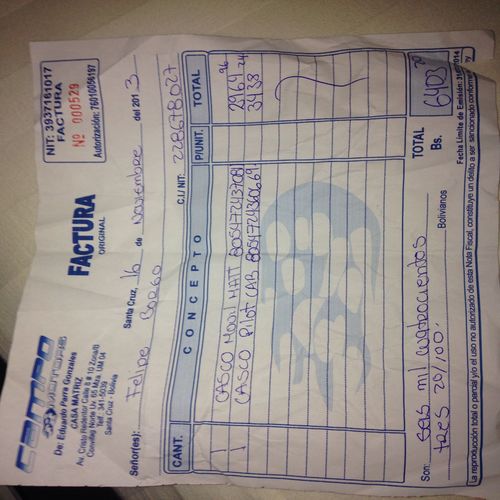 CAMPO
MOTORS
De: Eduardo Parra Gonzales
CASA MATRIZ
Av. Cristo Redentor Calle 8 # 10 Zona/B
Convifag Norte Uv. 65 Mza. UM 04
Telf.: 341-5039
Santa Cruz - Bolivia
FACTURA
ORIGINAL
NIT: 3937161017
FACTURA
Nº 000529
Autorización: 76010056197
Santa Cruz, 16 de Noviembre del 2013
Señor(es): Felipe Borgo C.I./ NIT: 228678027
CANT. CONCEPTO P/UNIT. TOTAL
1 CASCO MOVIL MATT 8054724 2969 96
1 CASCO Pilot CAB 3438 24
Son: seis mil cuatrocientos
tres 20/100. Bolivianos
TOTAL Bs. 6403 20
La reproducción total o parcial y/o el uso no autorizado de esta Nota Fiscal, constituye un delito a ser sancionado conforme
Fecha Límite de Emisión: